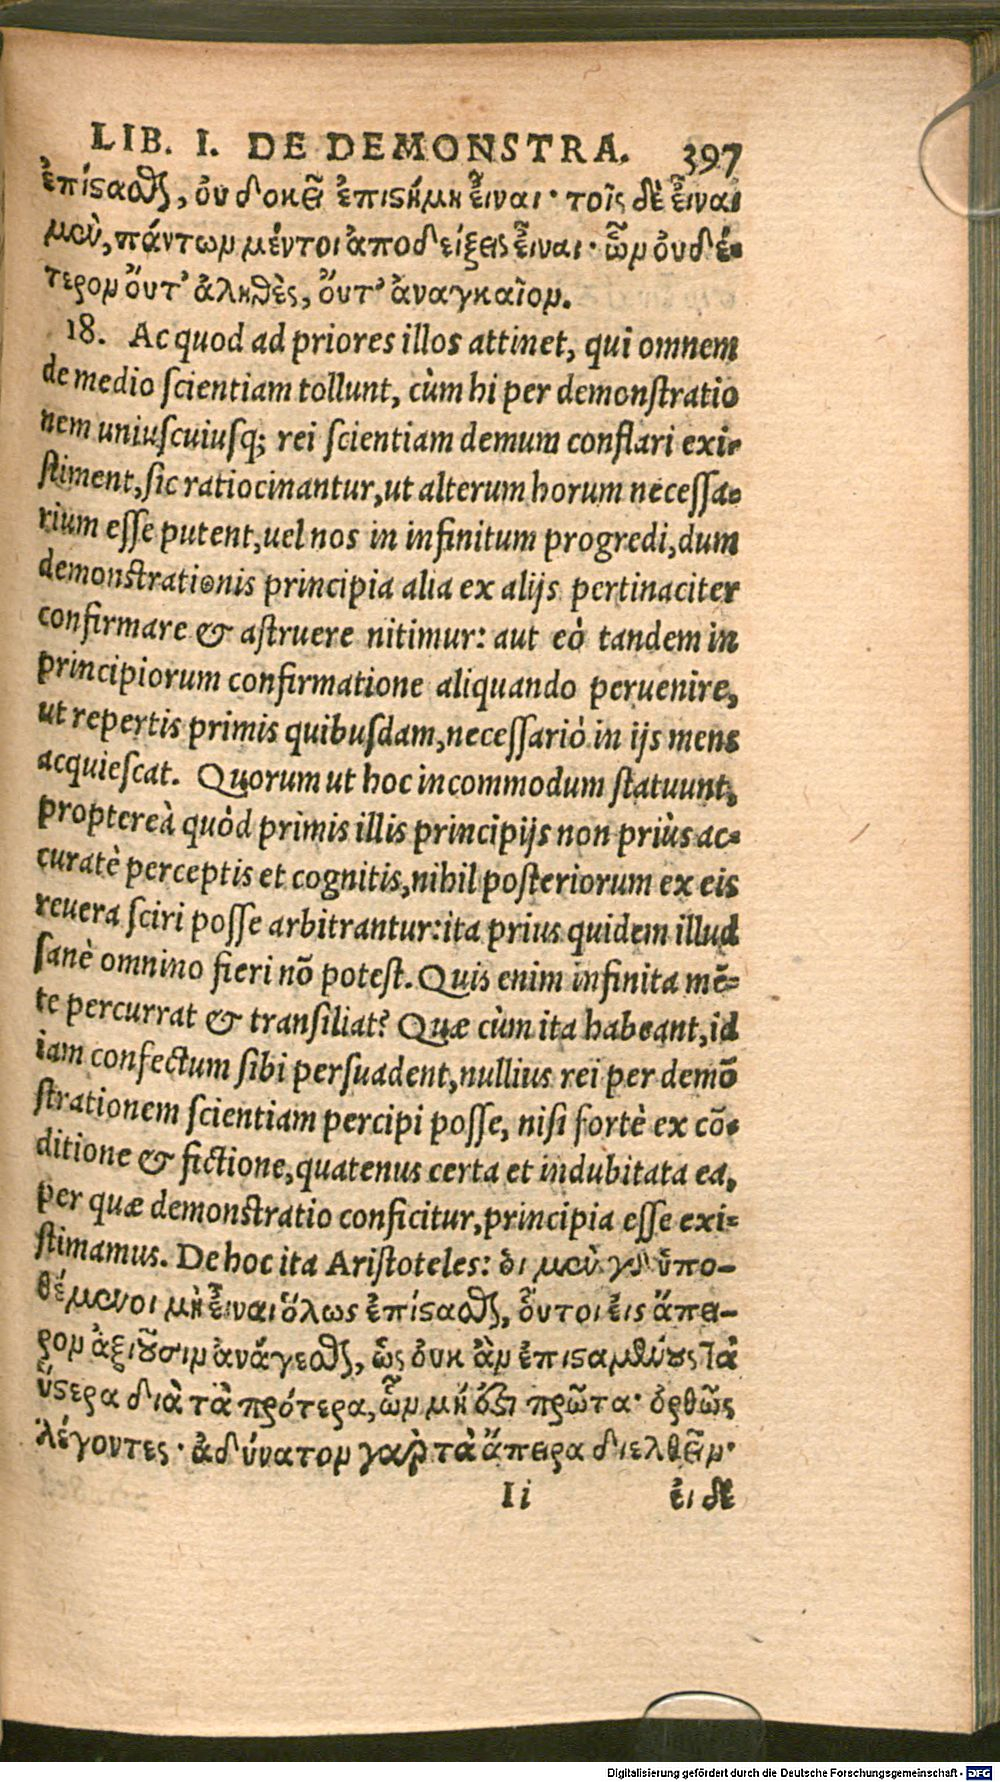 LIB. I. DE DEMONSTRA. 397
ἐπίστασθαι, οὐ δοκεῖ ἐπιστήμη εἶναι· τοῖς δὲ εἶναι
μὲν, πάντων μέντοι ἀποδείξεις εἶναι· ὧν οὐδέ-
τερον οὔτ' ἀληθὲς, οὔτ' ἀναγκαῖον.
18. Ac quod ad priores illos attinet, qui omnem
de medio scientiam tollunt, cùm hi per demonstratio
nem uniuscuiusq; rei scientiam demum conflari exi-
stiment, sic ratiocinantur, ut alterum horum necessa-
rium esse putent, uel nos in infinitum progredi, dum
demonstrationis principia alia ex alijs pertinaciter
confirmare & astruere nitimur: aut eò tandem in
principiorum confirmatione aliquando peruenire,
ut repertis primis quibusdam, necessariò in ijs mens
acquiescat. Quorum ut hoc incommodum statuunt,
proptereà quòd primis illis principijs non priùs ac-
curatè perceptis et cognitis, nihil posteriorum ex eis
reuera sciri posse arbitrantur: ita prius quidem illud
sanè omnino fieri nō potest. Quis enim infinita mē-
te percurrat & transiliat? Quæ cùm ita habeant, id
iam confectum sibi persuadent, nullius rei per demō
strationem scientiam percipi posse, nisi fortè ex cō-
ditione & fictione, quatenus certa et indubitata ea,
per quæ demonstratio conficitur, principia esse exi-
stimamus. De hoc ita Aristoteles: ὁι μὲν γὰρ ὑπο-
θέμενοι μὴ εἶναι ὅλως ἐπίστασθαι, οὗτοι εἰς ἄπει-
ρον ἀξιοῦσιν ἀνάγεσθαι, ὡς οὐκ ἂν ἐπισταμένους τὰ
ὕστερα διὰ τὰ πρότερα, ὧν μή ἐστι πρῶτα· ὀρθῶς
λέγοντες· ἀδύνατον γὰρ τὰ ἄπειρα διελθεῖν·
Ii εἰ δὲ
Digitalisierung gefördert durch die Deutsche Forschungsgemeinschaft - DFG